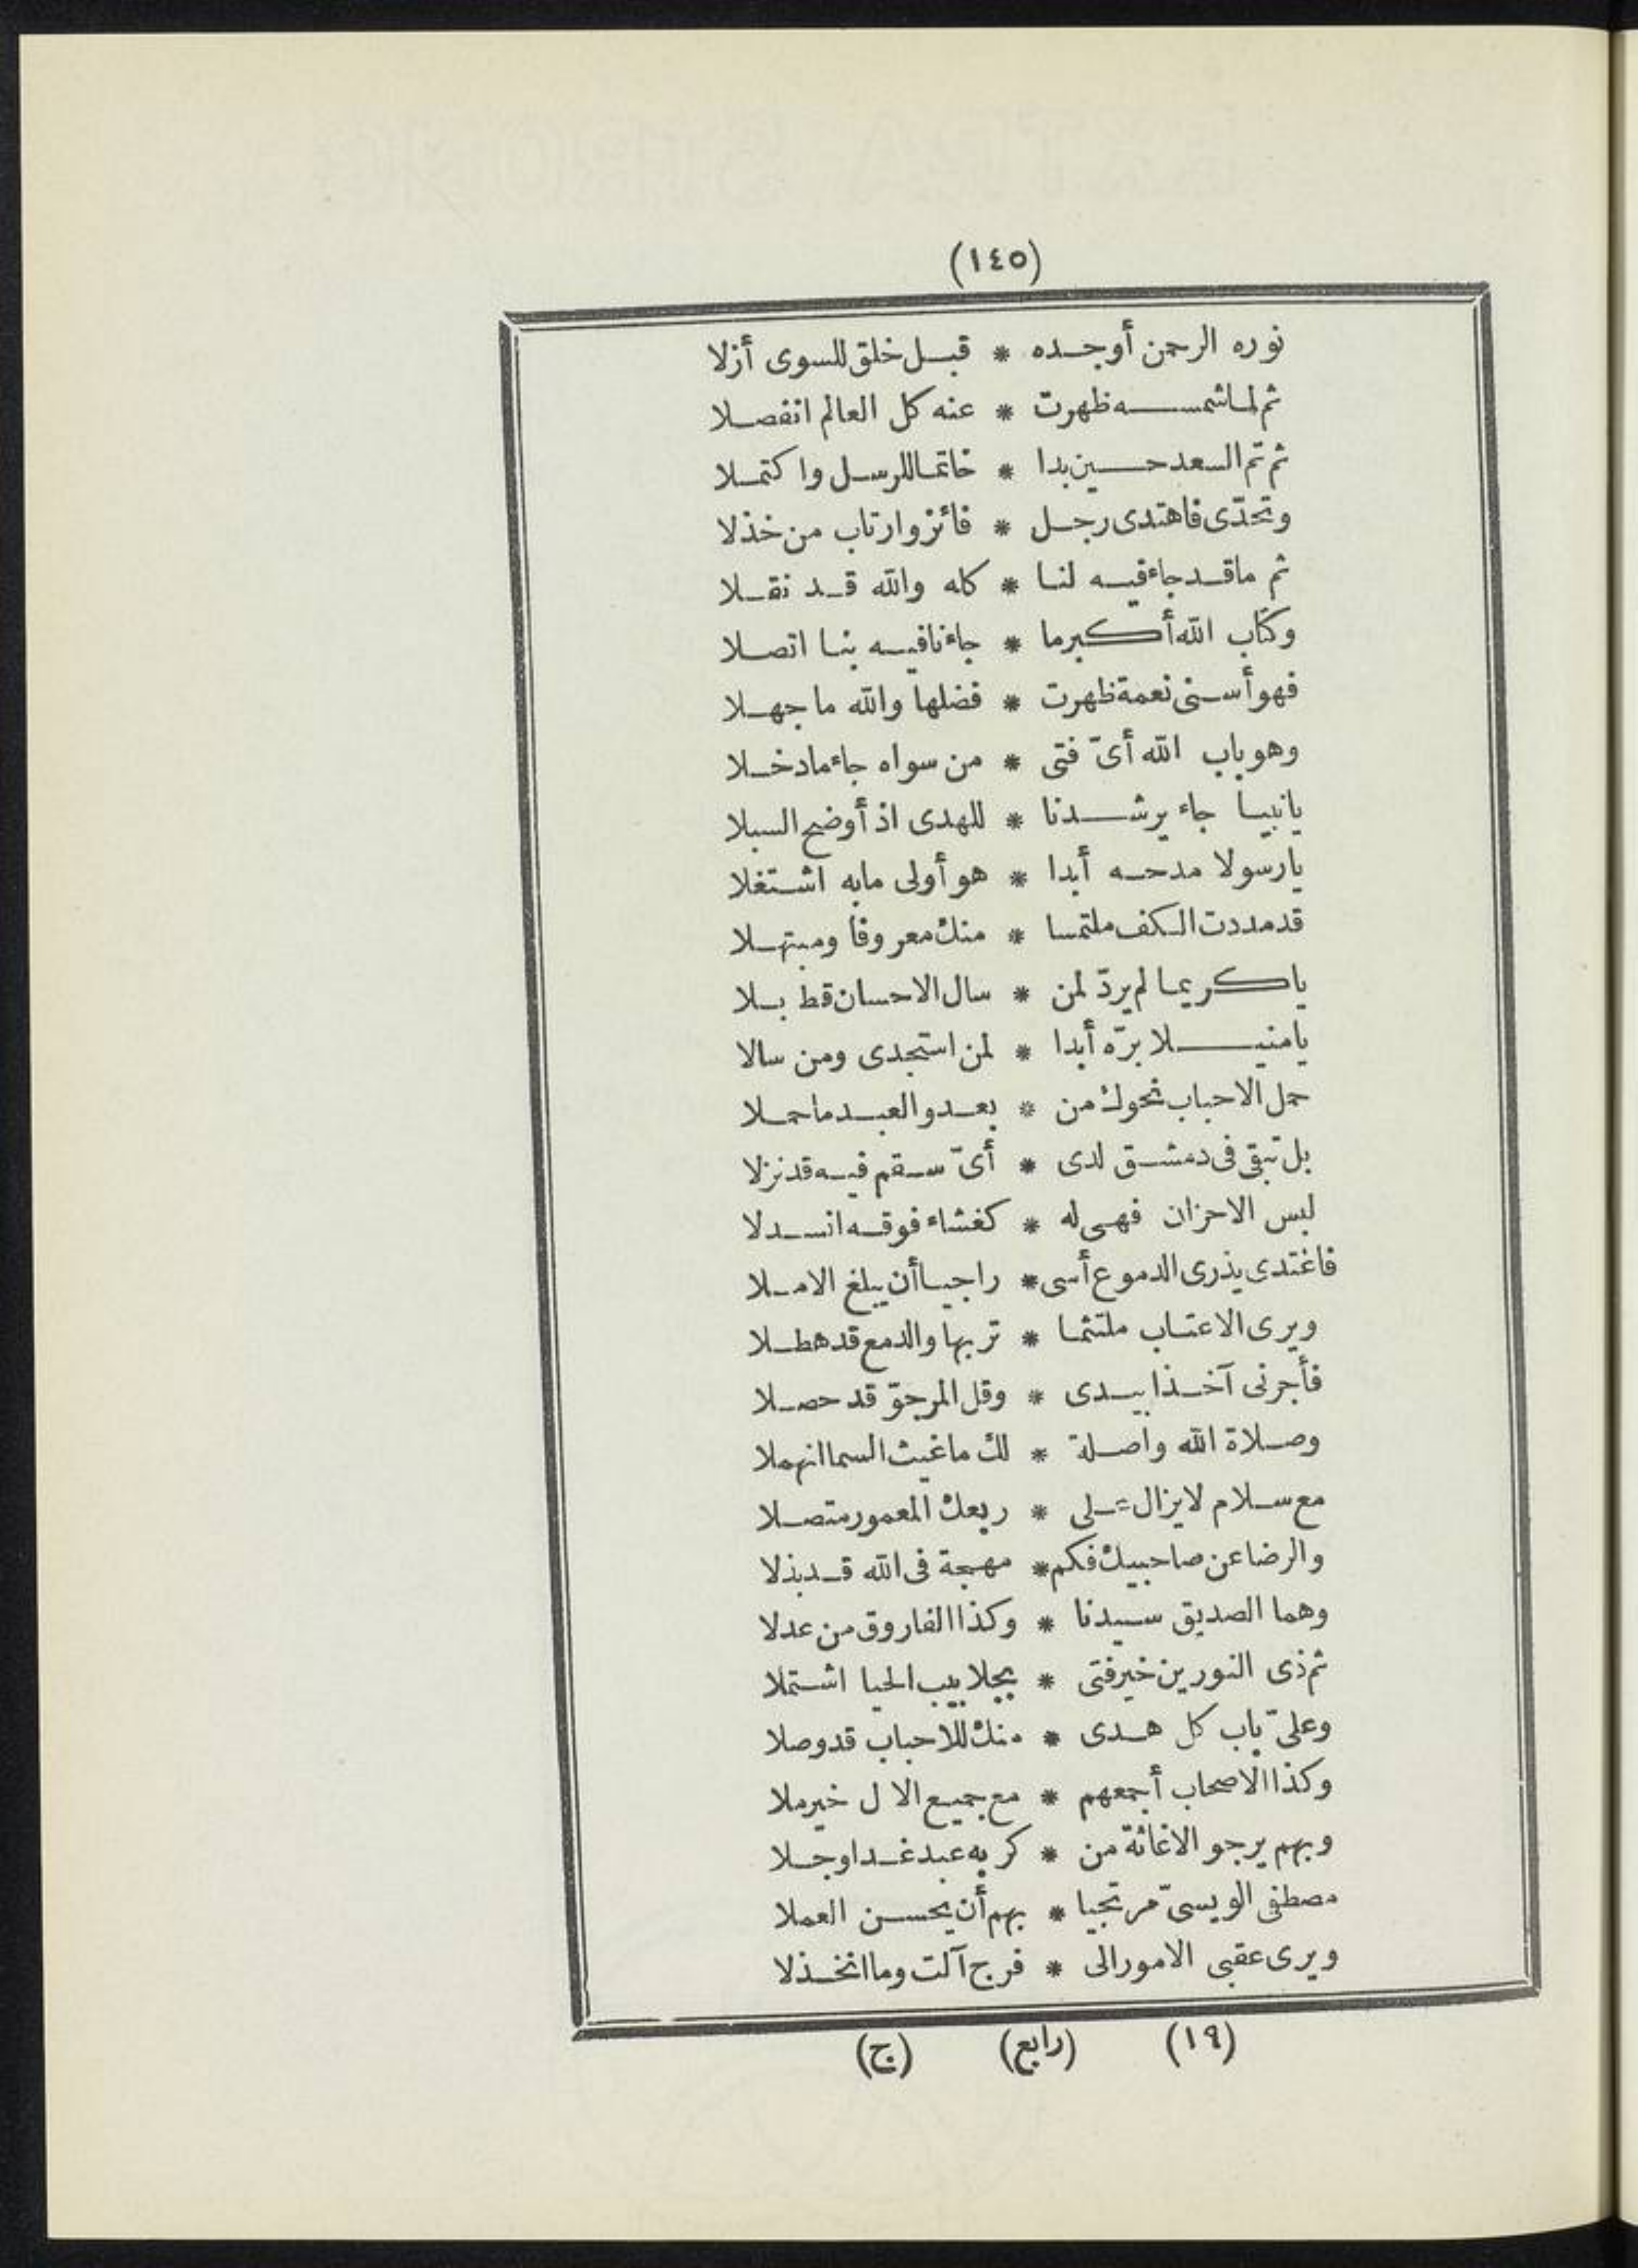 (١٤٥)
نوره الرحمن أوجده * قبل خلق للسوى أزلا
ثم لما شمسه ظهرت * عنه كل العالم انفصلا
ثم تم السعد حين بدا * خاتما للرسل واكتملا
وتحدّى فاهتدى رجل * فائز وارتاب من خذلا
ثم ماقد جاء فيه لنا * كله والله قد نقلا
وكتاب الله أكبر ما * جاءنا فيه بنا اتصلا
فهو أسنى نعمة ظهرت * فضلها والله ما جهلا
وهو باب الله أىّ فتى * من سواه جاء مادخلا
يانبيا جاء يرشدنا * للهدى اذ أوضح السبلا
يارسولا مدحه أبدا * هو أولى مابه اشتغلا
قد مددت الكف ملتمسا * منك معروفا ومبتهلا
ياكريما لم يردّ لمن * سال الاحسان قط بلا
يامنيلا برّه أبدا * لمن استجدى ومن سالا
حمل الاحباب نحوك من * بعد والعبد ما حملا
بل تبقى فى دمشق لدى * أىّ سقم فيه قد نزلا
لبس الاحزان فهى له * كغشاء فوقه انسدلا
فاغتدى يذرى الدموع أسى * راجيا أن يبلغ الاملا
ويرى الاعتاب ملتثما * تربها والدمع قد هطلا
فأجرنى آخذا بيدى * وقل المرجوّ قد حصلا
وصلاة الله واصلة * لك ما غيث السما انهملا
مع سلام لايزال على * ربعك المعمور متصلا
والرضا عن صاحبيك فكم * مهجة فى الله قد بذلا
وهما الصديق سيدنا * وكذا الفاروق من عدلا
ثم ذى النورين خير فتى * بجلابيب الحيا اشتملا
وعلىّ باب كل هدى * منك للاحباب قد وصلا
وكذا الاصحاب أجمعهم * مع جميع الال خير ملا
وبهم يرجو الاغاثة من * كربه عبد غدا وجلا
مصطفى الويسىّ مرتجيا * بهم أن يحسن العملا
ويرى عقبى الامور الى * فرج آلت وما انخذلا
(١٩) (رابع) (ج)